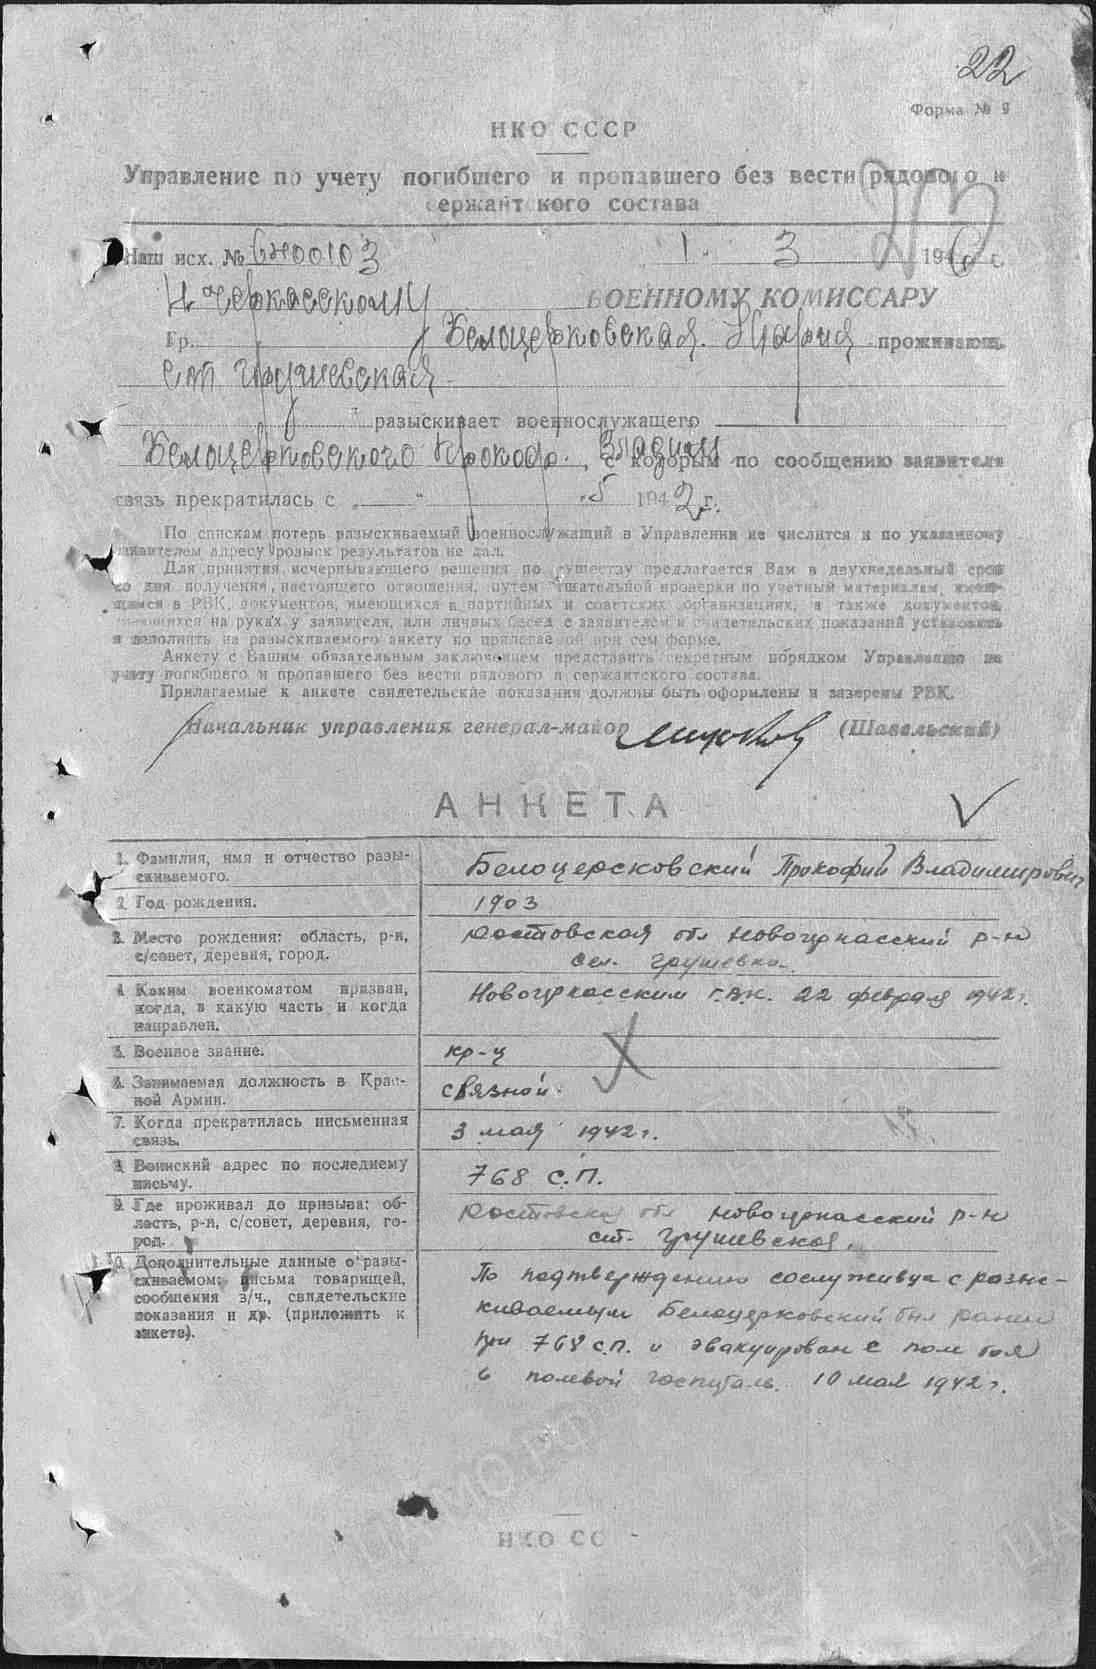 22
Форма № 9
НКО СССР
Управление по учету погибшего и пропавшего без вести рядового и
сержантского состава
Наш исх. № 6н00103 1. 3 1946
Н Черкасскому ВОЕННОМУ КОМИССАРУ
Гр. Белоцерковская Мария проживающ.
ст Грушевская
разыскивает военнослужащего
Белоцерковского Прокоф. Владим, с которым по сообщению заявителя
связь прекратилась с „ “ .5 1942 г.
По спискам потерь разыскиваемый военнослужащий в Управлении не числится и по указанному
заявителем адресу розыск результатов не дал.
Для принятия исчерпывающего решения по существу предлагается Вам в двухнедельный срок
со дня получения, настоящего отношения, путем тщательной проверки по учетный материалам, имею-
щимся в РВК, документов, имеющихся в партийных и советских организациях, а также документов,
имеющихся на руках у заявителя, или личных бесед с заявителем и свидетельских показаний установить
и заполнить на разыскиваемого анкету по прилагаемой при сем форме.
Анкету с Вашим обязательным заключением представить секретным порядком Управлению по
учету погибшего и пропавшего без вести рядового и сержантского состава.
Прилагаемые к анкете свидетельские показания должны быть оформлены и заверены РВК.
Начальник управления генерал-майор (Шавельский)
АНКЕТА
1. Фамилия, имя и отчество разы-
скиваемого.
Белоцерсковский Прокофий Владимирович
2. Год рождения.
1903
3. Место рождения: область, р-н,
с/совет, деревня, город.
Ростовская обл Новочркасский р-н
сел. Грушевка.
4. Каким военкоматом призван,
когда, в какую часть и когда
направлен.
Новочркасским Г.В.К. 22 февраля 1942 г.
5. Военное звание.
кр-ц
6. Занимаемая должность в Крас-
ной Армии.
связной
7. Когда прекратилась письменная
связь.
3 мая 1942 г.
8. Воинский адрес по последнему
письму.
768 с.п.
9. Где проживал до призыва: об-
ласть, р-н, с/совет, деревня, го-
род.
Ростовская обл Новочркасский р-н
ст. Грушевская.
10. Дополнительные данные о разы-
скиваемом: письма товарищей,
сообщения в/ч., свидетельские
показания и др. (приложить к
анкете).
По подтверждению сослуживца с разыс-
киваемым Белоцерковский был ранен
при 768 с.п. и эвакуирован с поля боя
в полевой госпиталь. 10 мая 1942 г.
НКО СС